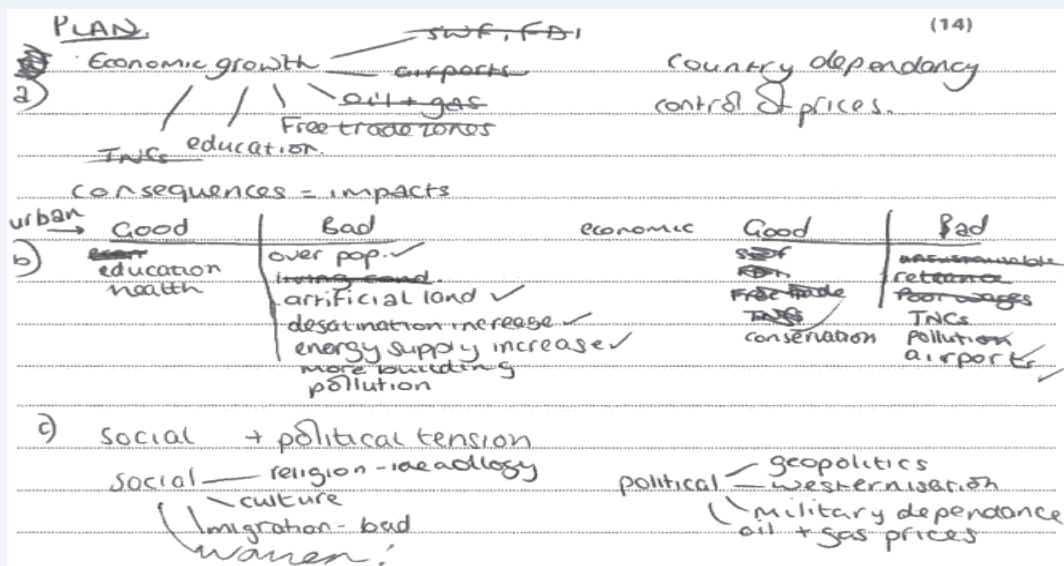 PLAN.
(14)
Economic growth
SWF, FDI
airports
Oil + gas
Free trade zones
education.
TNCs
country dependancy
control of prices.
a)
consequences = impacts
urban → Good | Bad
economic Good | Bad
b)
education
health
over pop. ✓
living cond.
artificial land ✓
desalination increase ✓
energy supply increase ✓
more building
pollution
SWF
FDI
Free trade
TNCs
conservation
unsustainable
reliance
Poor wages
TNCs
pollution
airports ✓
c) social + political tension
social — religion - ideadlogy
culture
migration - bad
women!
political — geopolitics
westernisation
military dependance
oil + gas prices